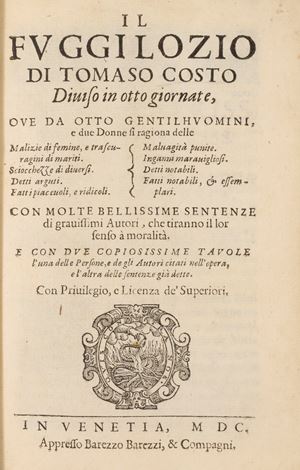 IL
FVGGILOZIO
DI TOMASO COSTO
Diuiso in otto giornate,
OVE DA OTTO GENTILHVOMINI,
e due Donne si ragiona delle
Malizie di femine, e trascu-
ragini di mariti.
Sciocchezze di diuersi.
Detti arguti.
Fatti piaceuoli, e ridicoli.
Maluagità punite.
Inganni marauigliosi.
Detti notabili.
Fatti notabili, & essem-
plari.
CON MOLTE BELLISSIME SENTENZE
di grauissimi Autori, che tiranno il lor
senso à moralità.
E CON DVE COPIOSISSIME TAVOLE
l'una delle Persone, e de gli Autori citati nell'opera,
e l'altra delle sentenze già dette.
Con Priuilegio, e Licenza de' Superiori.
IN VENETIA, M DC.
Appresso Barezzo Barezzi, & Compagni.